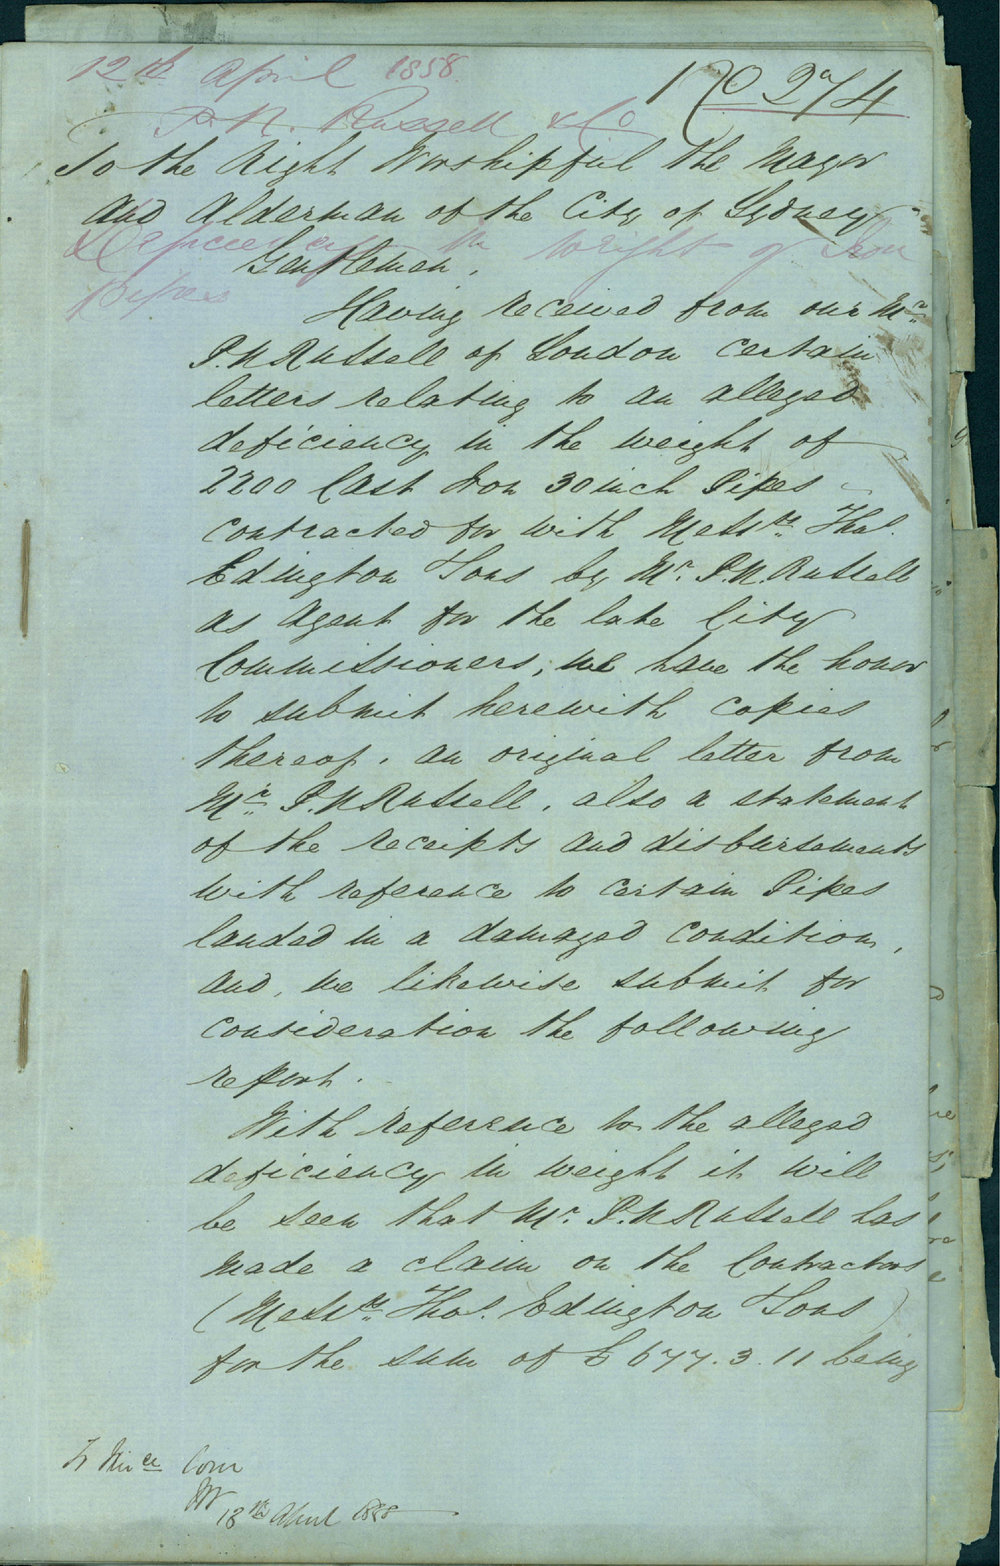 12th April 1858
No 274
P. N. Russell & Co
To the Right Worshipful the Mayor
and Alderman of the City of Sydney
Deficiency in the weight of Iron
pipes
Gentlemen,
Having received from our Mr.
P. N. Russell of London certain
letters relating to an alleged
deficiency in the weight of
2200 Cast Iron 30 inch Pipes
contracted for with Messrs. Thos.
Edington & Sons by Mr. P. N. Russell
as Agent for the late City
Commissioners; we have the honor
to submit herewith copies
thereof, an original letter from
Mr. P. N. Russell, also a statement
of the receipts and disbursements
with reference to certain Pipes
landed in a damaged condition,
and, we likewise submit for
consideration the following
report.
With reference to the alleged
deficiency in weight it will
be seen that Mr. P. N. Russell has
made a claim on the Contractors
(Messrs. Thos. Edington & Sons)
for the sum of £677.3.11 being
Com
13th April 1858